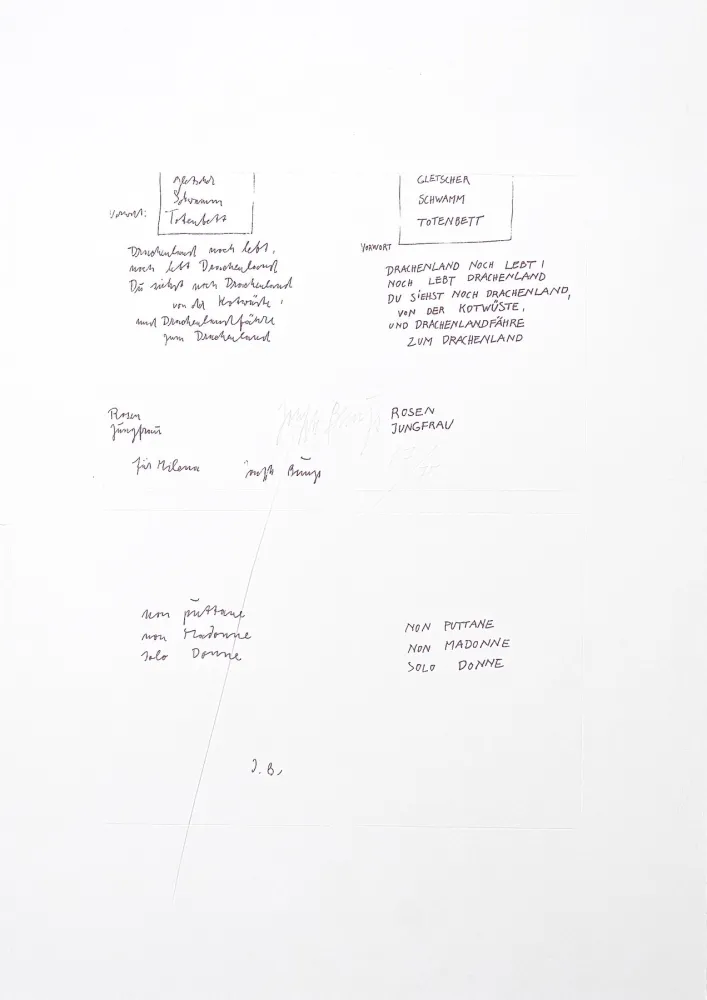 Gletscher
Schwamm
Totenbett
Vorwort:
Drachenland noch lebt,
noch lebt Drachenland
Du siehst noch Drachenland
von der Kotwüste,
und Drachenlandfähre
zum Drachenland
GLETSCHER
SCHWAMM
TOTENBETT
VORWORT
DRACHENLAND NOCH LEBT!
NOCH LEBT DRACHENLAND
DU SIEHST NOCH DRACHENLAND,
VON DER KOTWÜSTE,
UND DRACHENLANDFÄHRE
ZUM DRACHENLAND
Rosen
Jungfrau
für Milena
ROSEN
JUNGFRAU
non puttane
non Madonne
solo Donne
J.B.
NON PUTTANE
NON MADONNE
SOLO DONNE